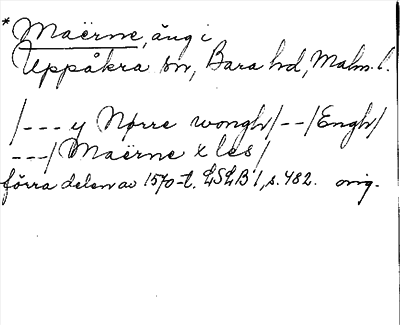 * Maërne, äng i
Uppåkra sn, Bara hd, Malm. l.
/--- y Nørre wongh/--/Engh/
---/ Maërne x les/
förra delen av 1570-t. LSLB 1, s. 482. orig.